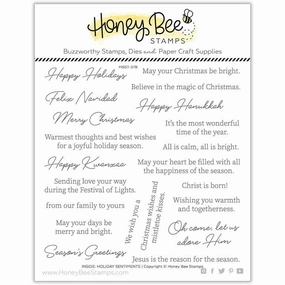 Honey Bee
STAMPS
Buzzworthy Stamps, Dies and Paper Craft Supplies
Happy Holidays
May your Christmas be bright.
Believe in the magic of Christmas.
Feliz Navidad
Happy Hanukkah
Merry Christmas
It's the most wonderful
time of the year.
Warmest thoughts and best wishes
for a joyful holiday season.
All is calm, all is bright.
Happy Kwanzaa
May your heart be filled with all
the happiness of the season.
Sending love your way
during the Festival of Lights.
We wish you a
Christmas wishes and
mistletoe kisses.
Christ is born!
from our family to yours
Wishing you warmth
and togetherness.
May your days be
merry and bright.
Oh come, let us
adore Him
Season's Greetings
Jesus is the reason for the season.
INSIDE: HOLIDAY SENTIMENTS | Copyright © Honey Bee Stamps
www.HoneyBeeStamps.com